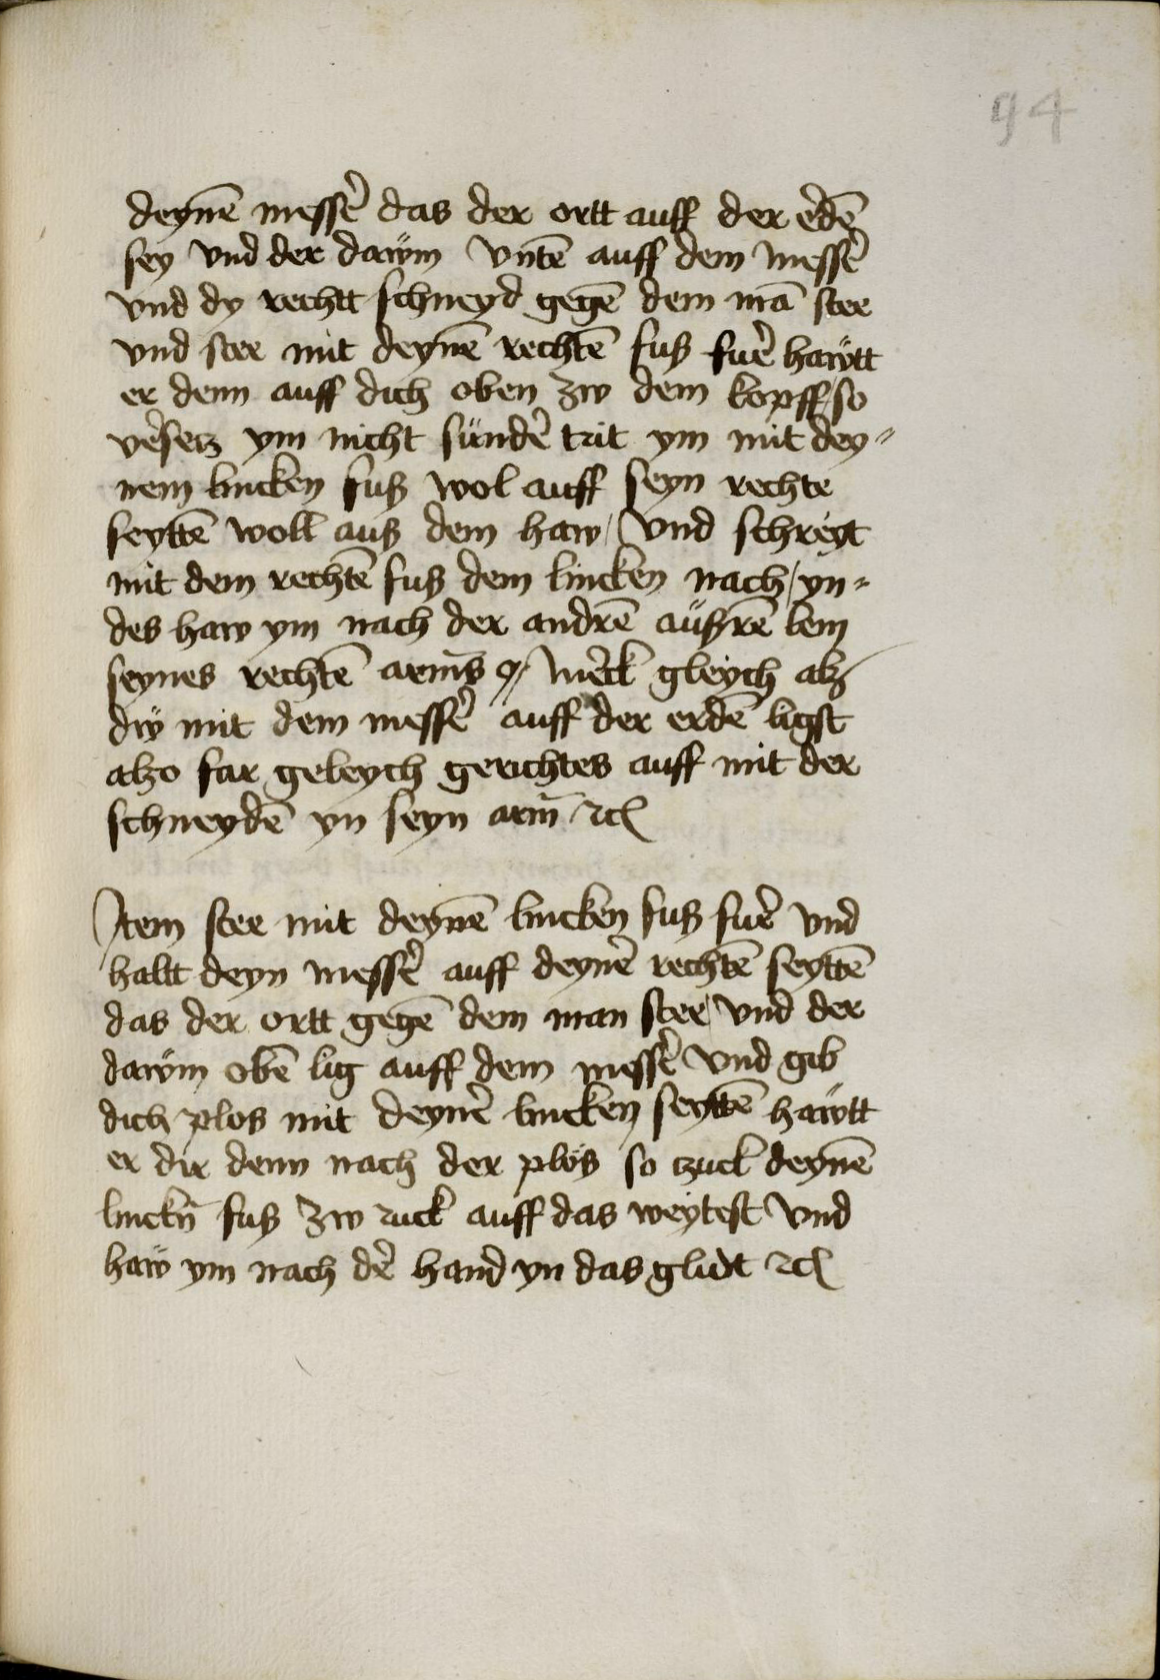 94
deynē messẽ das der ortt auff der ẽdē
sey vnd der dawm̈ vntē auff dem messẽ
vnd dy rechtt schneyd gegē dem mā stee
vnd stee mit deynē rechtē fuß fuẽ hawẗt
er denn auff dich oben zw dem kopff / so
vẽsetz ym nicht sündẽ trit ym mit dey〃
nem lincken fuß wol auff seyn rechte
seyttē woll auß dem haw / vnd schreyt
mit dem rechtē fuß dem lincken nach / yn〃
des haw ym nach der andrē aüßrē lem
seynes rechtē arm̄s Mẽck gleych alz
dẅ mit dem messẽ auff der erdē ligst
alzo far geleych gerichtes auff mit der
schneydē yn seyn arm̄ ⁊c
Item stee mit deynē lincken fuß fuẽ vnd
haltt deyn messẽ auff deynẽ rechtē seyttē
das der ortt gegē dem man stee / vnd der
dawm̈ obē lig auff dem messẽ vnd gib
dich plos mit deynẽ lincken seyttē hawẗt
er dir denn nach der plös so tzuck deynē
linckn̄ fuß zw ruck auff das weytest vnd
haẅ ym nach dẽ hand yn das glidt ⁊c